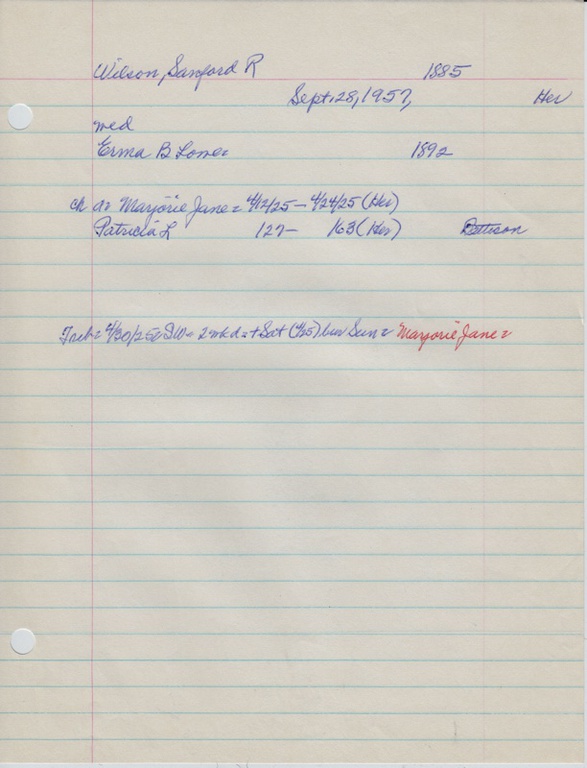 Wilson, Sanford R 1885
Sept. 28, 1957, Her
med
Erma B Lowe= 1892
ch a= Marjorie Jane= 4/12/25 – 4/24/25 (Her)
Patricia L 127– 163 (Her) Pattison
4/30/25= SW= 2 wk d= + Sat (4/25) bur Sun= Marjorie Jane=